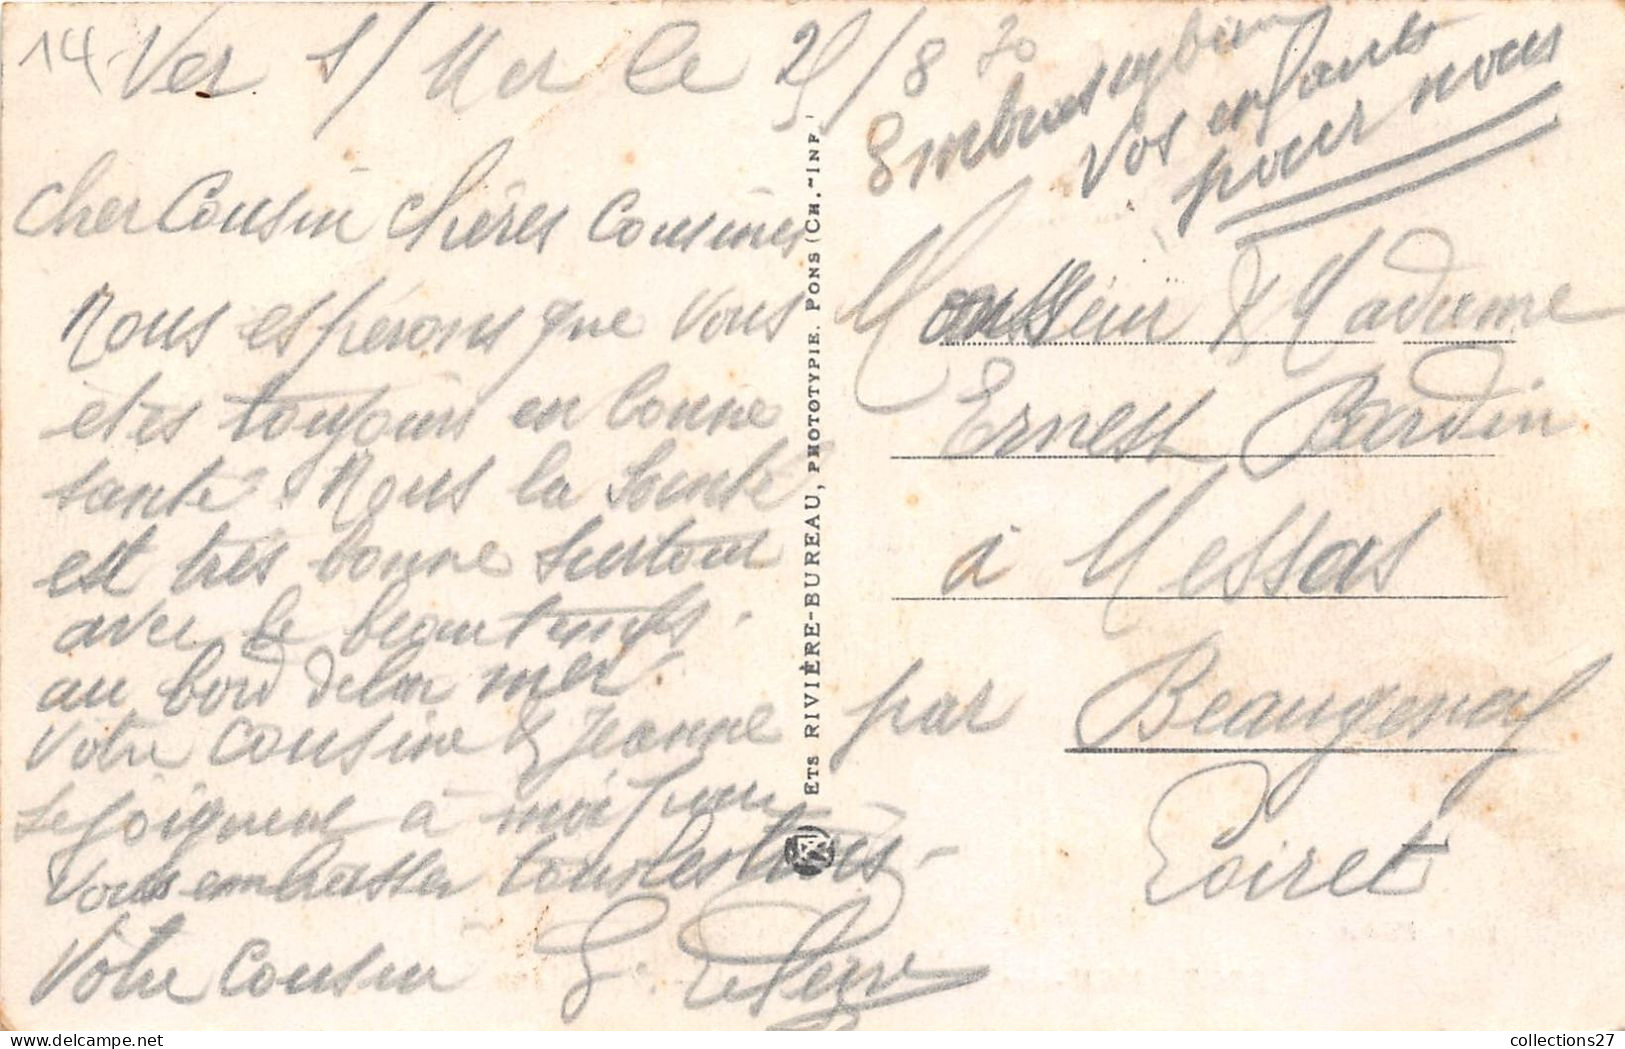 14
Ver s/ Mer le 25/8 30
Cher Cousin Chères Cousines
Nous espérons que vous
etes toujours en bonne
santé. Nous la Santé
est très bonne surtout
avec le beau temps.
au bord de la mer.
Votre cousine & Jeanne
se joignent à moi pour
vous embrasser tous les trois.
Votre cousin
Embrassez bien
vos enfants
pour nous
Monsieur & Madame
Ernest Bardin
à Messas
par Beaugency
Loiret
ETS RIVIÈRE-BUREAU, PHOTOTYPIE. PONS (CH.-INF.)
collections27